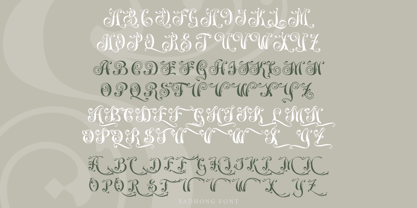 A B C D E F G H I J K L M
N O P Q R S T U V W X Y Z
A B C D E F G H I J K L M
N O P Q R S T U V W X Y Z
A B C D E F G H I J K L M
N O P Q R S T U V W X Y Z
A B C D E F G H I J K L M
N O P Q R S T U V W X Y Z